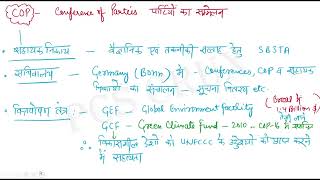 COP - Conference of Parties पार्टियों का सम्मेलन
• सहायक निकाय - वैज्ञानिक एवं तकनीकी सलाह हेतु SBSTA
• सचिवालय - Germany (Bonn) में - Conferences, COP व सहायक
निकायों का संचालन - सूचना वितरण etc.
• वित्तपोषण तंत्र: GEF - Global Environment Facility
GCF - Green Climate Fund - 2010 - COP-16 में
विकासशील देशों को UNFCCC के उद्देश्यों को प्राप्त करने
में सहायता